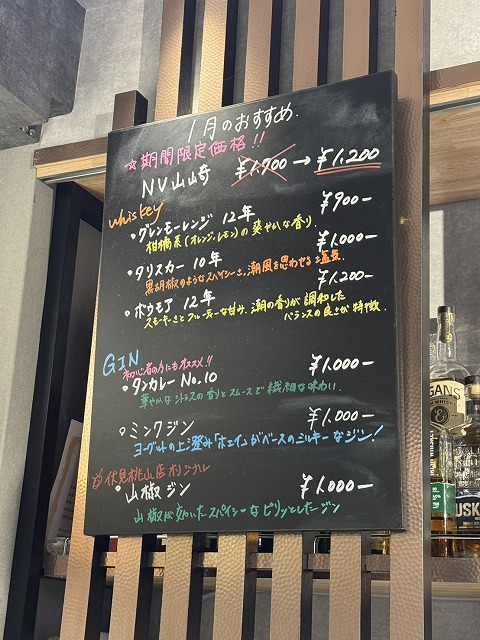 1月のおすすめ.
☆期間限定価格!!
NV山崎 ¥1.700→¥1.200
whiskey
・グレンモーレンジ 12年 ¥900-
柑橘系(オレンジ、レモン)の爽やかな香り.
・タリスカー 10年 ¥1.000-
黒胡椒のようなスパイシーさ、潮風を思わせる塩気
・ボウモア 12年 ¥1.200-
スモーキーさとフルーティーな甘み、潮の香りが調和した
バランスの良さが特徴.
GIN
初心者の方にもオススメ!!
・タンカレーNo.10 ¥1.000-
華やかなシトラスの香りとスムースで繊細な味わい.
・ミンクジン ¥1.000-
ヨーグルトの上澄み「ホエイ」がベースのミルキーなジン!
伏見桃山店オリジナル
・山椒ジン ¥1.000-
山椒が効いたスパイシーなピリッとしたジン
GANS
WHISKEY
USK